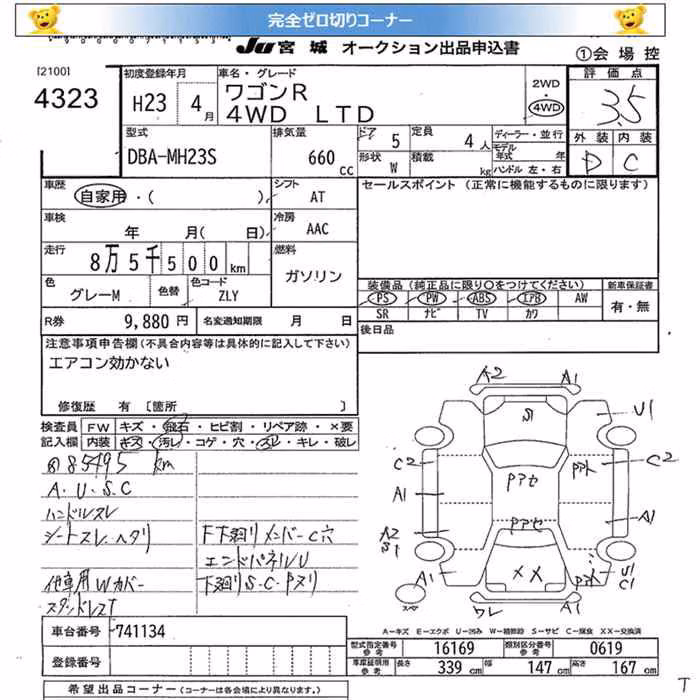 完全ゼロ切りコーナー
JU 宮城 オークション出品申込書
①会場控
[2100]
4323
初度登録年月
H23 4月
車名・グレード
ワゴンR
4WD LTD
2WD
・
4WD
評価点
3.5
型式
DBA-MH23S
排気量
660 cc
ドア 5
定員 4人
形状 W
積載 kg
ディーラー・並行
モデル年式 年
ハンドル 左・右
外装 内装
D C
車歴
自家用・( )
シフト
AT
セールスポイント (正常に機能するものに限ります)
車検
年 月( 日)
冷房
AAC
走行
8万5千500km
燃料
ガソリン
色
グレーM
色替
色コード
ZLY
装備品(純正品に限り○をつけてください)
新車保証書
PS PW ABS エアB AW
SR ナビ TV カワ
有・無
R券 9,880円
名変通知期限 月 日
後日品
注意事項申告欄(不具合内容等は具体的に記入して下さい)
エアコン効かない
修復歴 有〔箇所 〕
検査員記入欄
FW キズ・飛石・ヒビ割・リペア跡・×要
内装 キズ・汚レ・コゲ・穴・スレ・キレ・破レ
85495 km
A・U・S・C
ハンドルスレ
シートスレ・ヘタリ
下廻りメンバーC穴
エンドパネルU
他車用Wカバー
下廻りS・C・Pヌリ
スタッドレスT
A2 A1
S1
U1
C2 Pアト C2
A1 Pアセ
A1
A2 Pアセ
S1
A1 XX Pアト U1
C1
スペア
ワレ A1
A=キズ E=エクボ U=凹み W=補修跡 S=サビ C=腐食 XX=交換済
車台番号 -741134
登録番号
型式指定番号 参考 16169
類別区分番号 参考 0619
車庫証明用 参考 長さ 339cm 幅 147cm 高さ 167cm
T
希望出品コーナー(コーナーは各会場により異なります。)